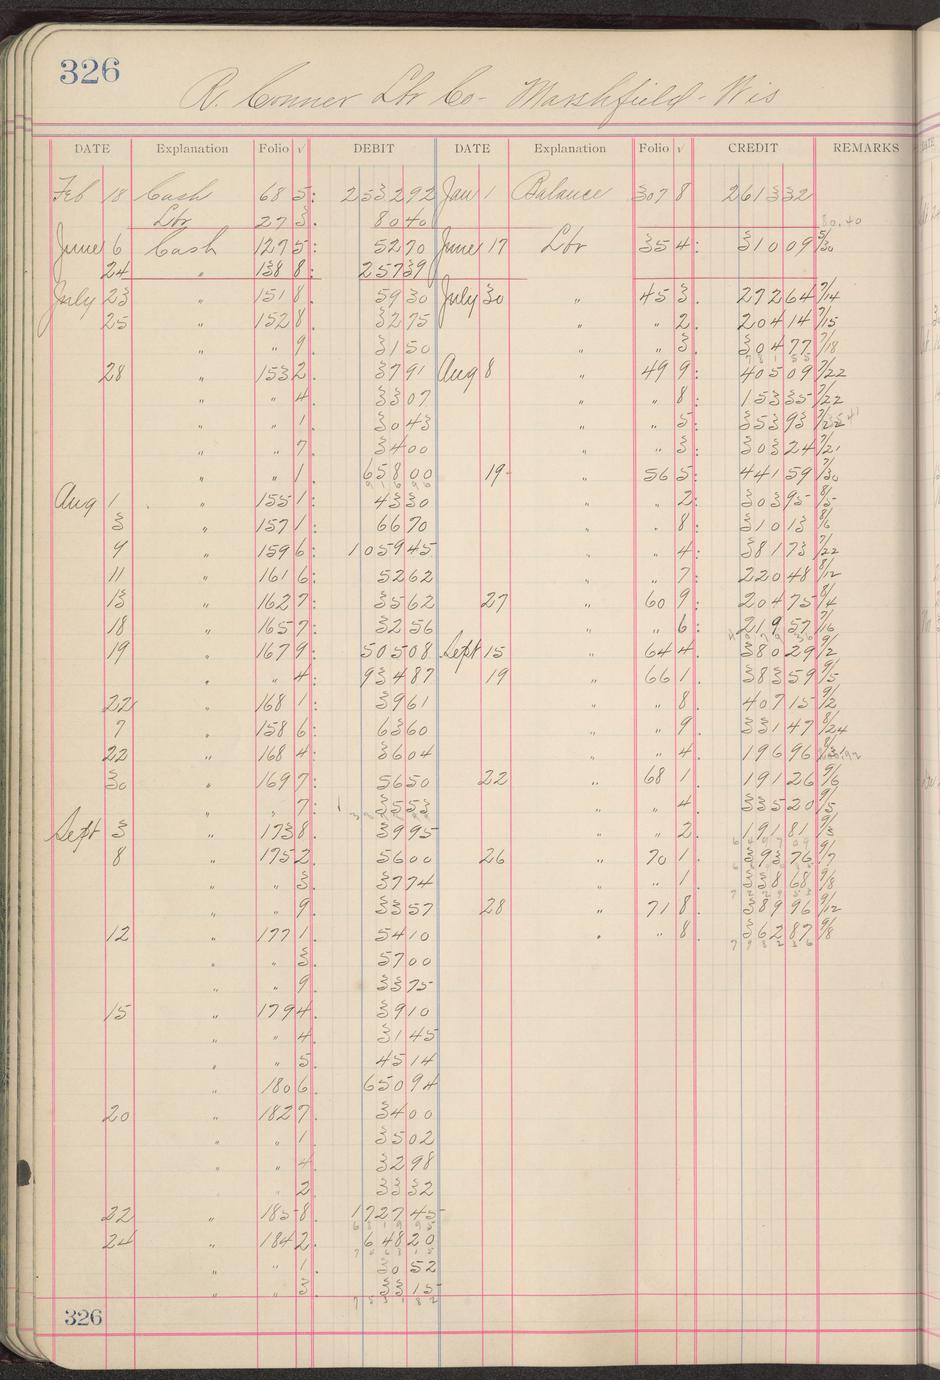 326
R. Conner Lbr Co - Marshfield - Wis
DATE Explanation Folio √ DEBIT DATE Explanation Folio √ CREDIT REMARKS
Feb 18 Cash 68 5: 2532 92 Jan 1 Balance 307 8 2613 32
Lbr 27 3. 80 40 80.40
June 6 Cash 127 5: 52 70 June 17 Lbr 35 4: 310 09 5/30
24 " 138 8: 257 39
July 23 " 151 8. 59 30 July 30 " 45 3. 272 64 7/14
25 " 152 8. 32 75 " " 2. 204 14 7/15
" " 9. 31 50 " " 3: 304 77 7/18
28 " 153 2. 37 91 Aug 8 " 49 9: 405 09 7/22
" " 4. 33 07 " " 8: 153 35 7/22
" " 1. 30 43 " " 5: 353 93 7/22
" " 7. 34 00 " " 3: 303 24 7/21
" " 1. 658 00 19 " 56 5: 441 59 7/30
Aug 1 " 155 1: 43 30 " " 2: 303 95 8/5
3 " 157 1: 66 70 " " 8: 310 13 8/6
9 " 159 6: 1059 45 " " 4: 381 73 7/22
11 " 161 6: 52 62 " " 7: 220 48 8/12
13 " 162 7: 35 62 27 " 60 9: 204 75 8/4
18 " 165 7: 32 56 " " 6: 219 57 7/16
19 " 167 9: 505 08 Sept 15 " 64 4: 380 29 9/2
" " 4: 934 87 19 " 66 1. 383 59 9/5
22 " 168 1: 39 61 " " 8. 407 15 9/2
7 " 158 6: 63 60 " " 9. 331 47 8/24
22 " 168 4: 36 04 " " 4. 196 96
30 " 169 7: 56 50 22 " 68 1. 191 26 9/6
" " 7: 35 53 " " 4. 335 20 9/5
Sept 3 " 173 8. 39 95 " " 2. 191 81 9/3
8 " 175 2. 56 00 26 " 70 1. 393 76 9/7
" " 3. 37 74 " " 1. 338 68 9/8
" " 9. 33 57 28 " 71 8. 389 96 9/12
12 " 177 1. 54 10 " " 8. 362 87 9/8
" " 3. 57 00
" " 9. 33 75
15 " 179 4. 39 10
" " 4. 31 45
" " 5. 45 14
" 180 6. 650 94
20 " 182 7. 34 00
" " 1. 35 02
" " 4. 32 98
" 2. 33 32
22 " 185 8. 1727 45
24 " 184 2. 648 20
" " 1. 30 52
" " 3. 33 15
326